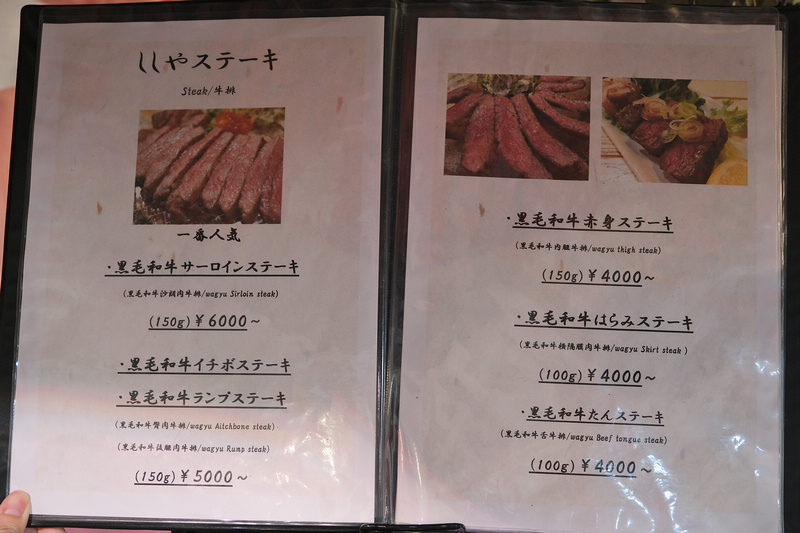 ししやステーキ
Steak/牛排
一番人気
・黒毛和牛サーロインステーキ
(黒毛和牛沙朗肉牛排/wagyu Sirloin steak)
(150g)¥6000~
・黒毛和牛イチボステーキ
・黒毛和牛ランプステーキ
(黒毛和牛臀肉牛排/wagyu Aitchbone steak)
(黒毛和牛後腿肉牛排/wagyu Rump steak)
(150g)¥5000~
・黒毛和牛赤身ステーキ
(黒毛和牛内腿牛排/wagyu thigh steak)
(150g)¥4000~
・黒毛和牛はらみステーキ
(黒毛和牛横隔膜肉牛排/wagyu Skirt steak )
(100g)¥4000~
・黒毛和牛たんステーキ
(黒毛和牛舌牛排/wagyu Beef tongue steak)
(100g)¥4000~